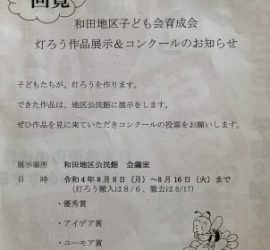 回覧
和田地区子ども会育成会
灯ろう作品展示＆コンクールのお知らせ
子どもたちが、灯ろうを作ります。
できた作品は、地区公民館に展示をします。
ぜひ作品を見に来ていただきコンクールの投票をお願いします。
展示場所　和田地区公民館　会議室
日　時　令和４年８月８日（月）～８月１６日（火）まで
（灯ろう搬入は８/６、撤去は８/17）
・優秀賞
・アイデア賞
・ユーモア賞